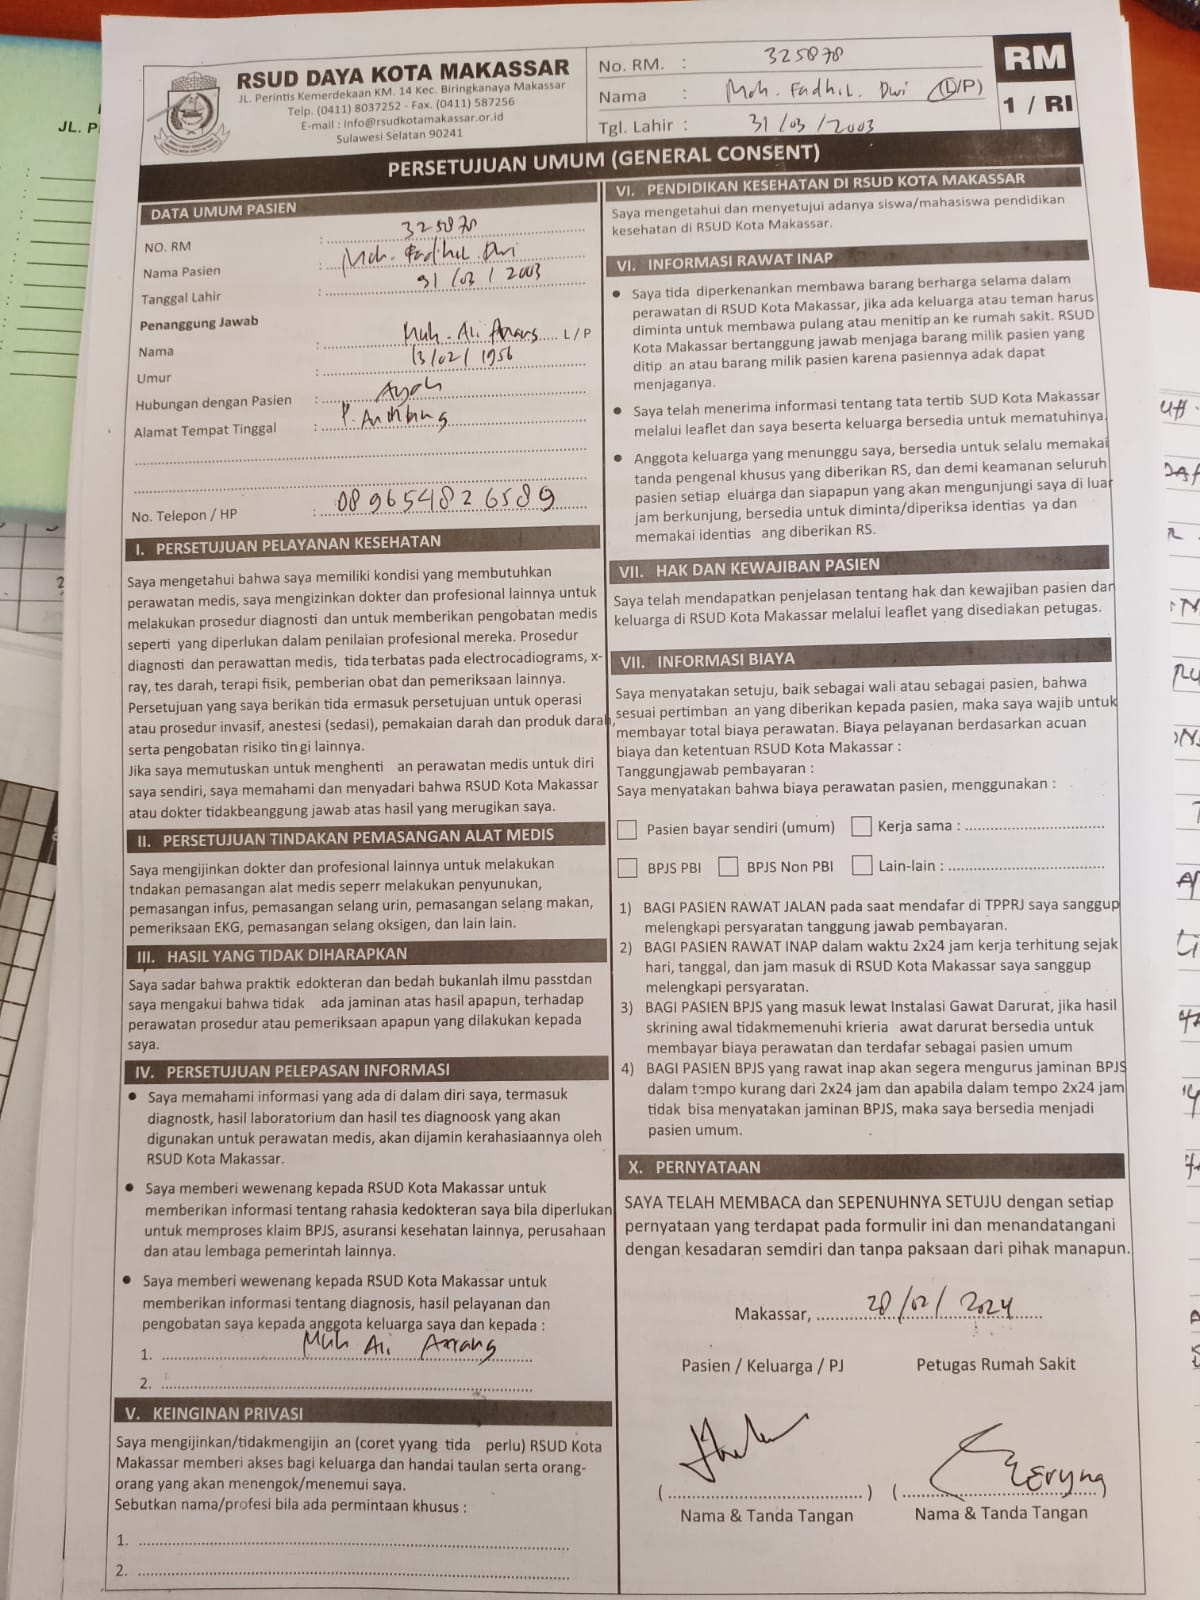 RSUD DAYA KOTA MAKASSAR
JL. Perintis Kemerdekaan KM. 14 Kec. Biringkanaya Makassar
Telp. (0411) 8037252 - Fax. (0411) 587256
E-mail : info@rsudkotamakassar.or.id
Sulawesi Selatan 90241
No. RM. : 325878
Nama : Moh. Fadhil. Dwi (L/P)
Tgl. Lahir : 31/03/2003
RM
1 / RI
PERSETUJUAN UMUM (GENERAL CONSENT)
DATA UMUM PASIEN
NO. RM : 325878
Nama Pasien : Moh. Fadhil. Dwi
Tanggal Lahir : 31/03/2003
Penanggung Jawab
Nama : Muh. Ali Arrang L/P
Umur : 13/02/1956
Hubungan dengan Pasien : Ayah
Alamat Tempat Tinggal :
No. Telepon / HP : 089654826589
I. PERSETUJUAN PELAYANAN KESEHATAN
Saya mengetahui bahwa saya memiliki kondisi yang membutuhkan
perawatan medis, saya mengizinkan dokter dan profesional lainnya untuk
melakukan prosedur diagnosti dan untuk memberikan pengobatan medis
seperti yang diperlukan dalam penilaian profesional mereka. Prosedur
diagnosti dan perawattan medis, tida terbatas pada electrocadiograms, x-
ray, tes darah, terapi fisik, pemberian obat dan pemeriksaan lainnya.
Persetujuan yang saya berikan tida ermasuk persetujuan untuk operasi
atau prosedur invasif, anestesi (sedasi), pemakaian darah dan produk darah,
serta pengobatan risiko tin gi lainnya.
Jika saya memutuskan untuk menghenti an perawatan medis untuk diri
saya sendiri, saya memahami dan menyadari bahwa RSUD Kota Makassar
atau dokter tidakbeanggung jawab atas hasil yang merugikan saya.
II. PERSETUJUAN TINDAKAN PEMASANGAN ALAT MEDIS
Saya mengijinkan dokter dan profesional lainnya untuk melakukan
tndakan pemasangan alat medis seperr melakukan penyunukan,
pemasangan infus, pemasangan selang urin, pemasangan selang makan,
pemeriksaan EKG, pemasangan selang oksigen, dan lain lain.
III. HASIL YANG TIDAK DIHARAPKAN
Saya sadar bahwa praktik edokteran dan bedah bukanlah ilmu passtdan
saya mengakui bahwa tidak ada jaminan atas hasil apapun, terhadap
perawatan prosedur atau pemeriksaan apapun yang dilakukan kepada
saya.
IV. PERSETUJUAN PELEPASAN INFORMASI
• Saya memahami informasi yang ada di dalam diri saya, termasuk
diagnostk, hasil laboratorium dan hasil tes diagnoosk yang akan
digunakan untuk perawatan medis, akan dijamin kerahasiaannya oleh
RSUD Kota Makassar.
• Saya memberi wewenang kepada RSUD Kota Makassar untuk
memberikan informasi tentang rahasia kedokteran saya bila diperlukan
untuk memproses klaim BPJS, asuransi kesehatan lainnya, perusahaan
dan atau lembaga pemerintah lainnya.
• Saya memberi wewenang kepada RSUD Kota Makassar untuk
memberikan informasi tentang diagnosis, hasil pelayanan dan
pengobatan saya kepada anggota keluarga saya dan kepada :
1. Muh Ali Arrang
2.
V. KEINGINAN PRIVASI
Saya mengijinkan/tidakmengijin an (coret yyang tida perlu) RSUD Kota
Makassar memberi akses bagi keluarga dan handai taulan serta orang-
orang yang akan menengok/menemui saya.
Sebutkan nama/profesi bila ada permintaan khusus :
1.
2.
VI. PENDIDIKAN KESEHATAN DI RSUD KOTA MAKASSAR
Saya mengetahui dan menyetujui adanya siswa/mahasiswa pendidikan
kesehatan di RSUD Kota Makassar.
VI. INFORMASI RAWAT INAP
• Saya tida diperkenankan membawa barang berharga selama dalam
perawatan di RSUD Kota Makassar, jika ada keluarga atau teman harus
diminta untuk membawa pulang atau menitip an ke rumah sakit. RSUD
Kota Makassar bertanggung jawab menjaga barang milik pasien yang
ditip an atau barang milik pasien karena pasiennya adak dapat
menjaganya.
• Saya telah menerima informasi tentang tata tertib SUD Kota Makassar
melalui leaflet dan saya beserta keluarga bersedia untuk mematuhinya.
• Anggota keluarga yang menunggu saya, bersedia untuk selalu memakai
tanda pengenal khusus yang diberikan RS, dan demi keamanan seluruh
pasien setiap eluarga dan siapapun yang akan mengunjungi saya di luar
jam berkunjung, bersedia untuk diminta/diperiksa identias ya dan
memakai identias ang diberikan RS.
VII. HAK DAN KEWAJIBAN PASIEN
Saya telah mendapatkan penjelasan tentang hak dan kewajiban pasien dan
keluarga di RSUD Kota Makassar melalui leaflet yang disediakan petugas.
VII. INFORMASI BIAYA
Saya menyatakan setuju, baik sebagai wali atau sebagai pasien, bahwa
sesuai pertimban an yang diberikan kepada pasien, maka saya wajib untuk
membayar total biaya perawatan. Biaya pelayanan berdasarkan acuan
biaya dan ketentuan RSUD Kota Makassar :
Tanggungjawab pembayaran :
Saya menyatakan bahwa biaya perawatan pasien, menggunakan :
Pasien bayar sendiri (umum) Kerja sama :
BPJS PBI BPJS Non PBI Lain-lain :
1) BAGI PASIEN RAWAT JALAN pada saat mendafar di TPPRJ saya sanggup
melengkapi persyaratan tanggung jawab pembayaran.
2) BAGI PASIEN RAWAT INAP dalam waktu 2x24 jam kerja terhitung sejak
hari, tanggal, dan jam masuk di RSUD Kota Makassar saya sanggup
melengkapi persyaratan.
3) BAGI PASIEN BPJS yang masuk lewat Instalasi Gawat Darurat, jika hasil
skrining awal tidakmemenuhi krieria awat darurat bersedia untuk
membayar biaya perawatan dan terdafar sebagai pasien umum
4) BAGI PASIEN BPJS yang rawat inap akan segera mengurus jaminan BPJS
dalam tempo kurang dari 2x24 jam dan apabila dalam tempo 2x24 jam
tidak bisa menyatakan jaminan BPJS, maka saya bersedia menjadi
pasien umum.
X. PERNYATAAN
SAYA TELAH MEMBACA dan SEPENUHNYA SETUJU dengan setiap
pernyataan yang terdapat pada formulir ini dan menandatangani
dengan kesadaran semdiri dan tanpa paksaan dari pihak manapun.
Makassar, 28/02/2024
Pasien / Keluarga / PJ Petugas Rumah Sakit
Nama & Tanda Tangan Nama & Tanda Tangan